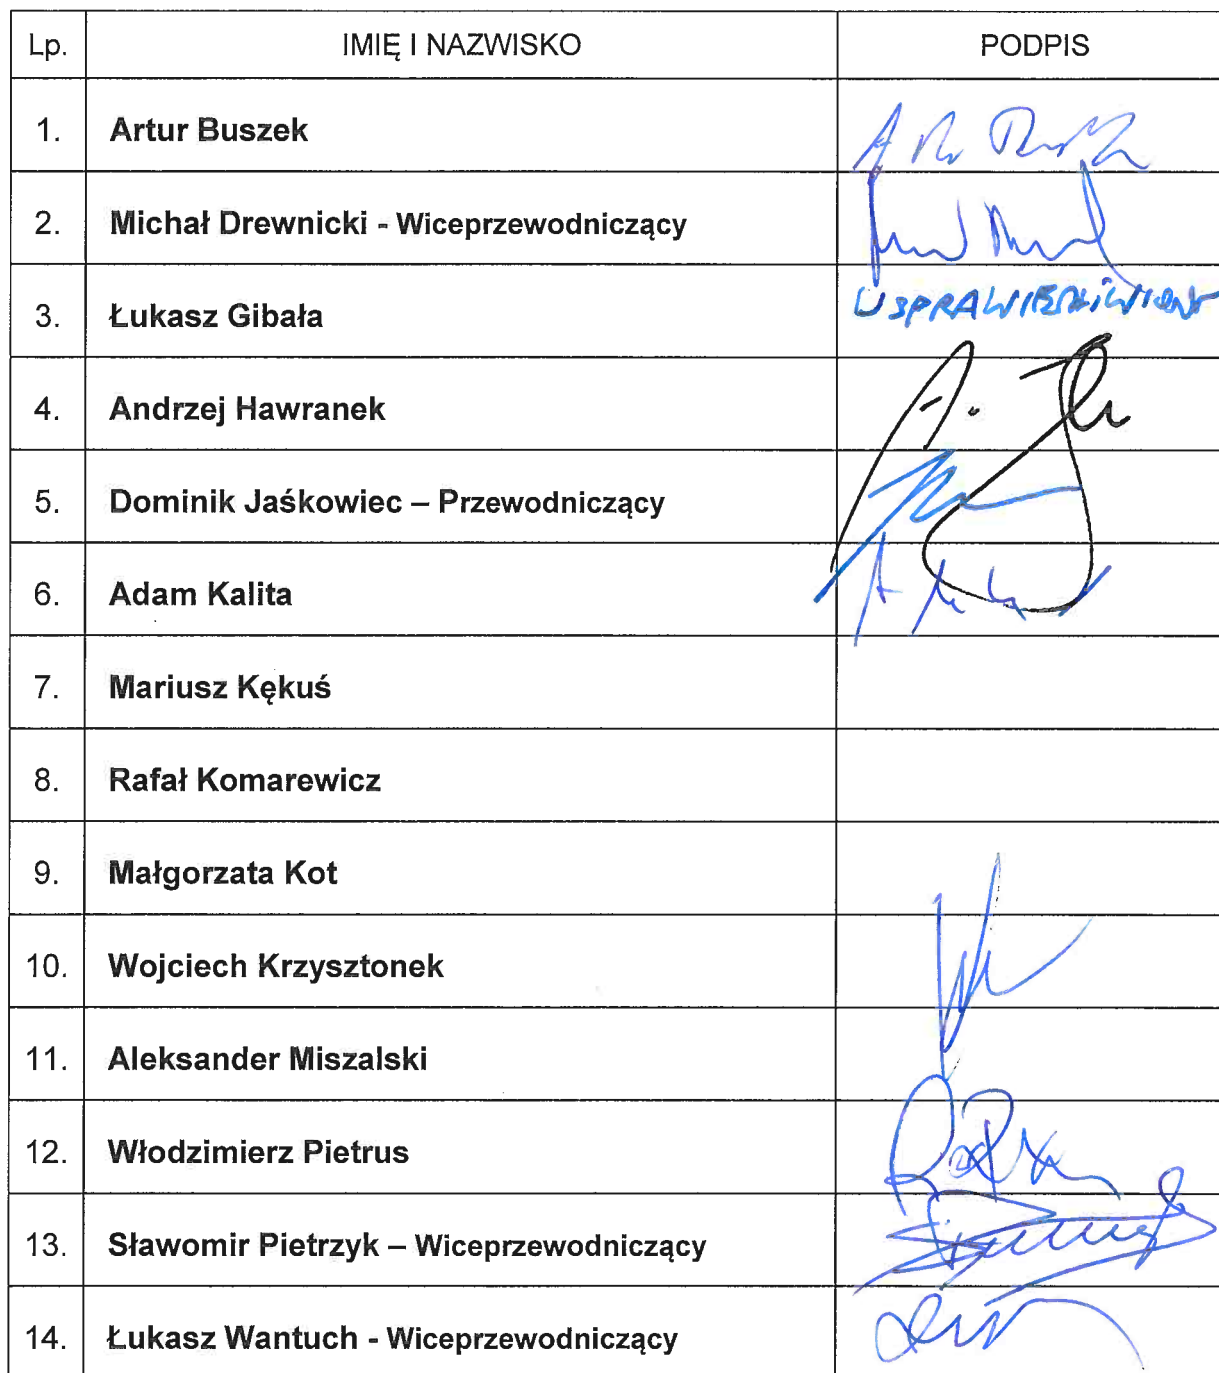 Lp. IMIĘ I NAZWISKO PODPIS
1. Artur Buszek
2. Michał Drewnicki - Wiceprzewodniczący
3. Łukasz Gibała USPRAWIEDLIWIONY
4. Andrzej Hawranek
5. Dominik Jaśkowiec – Przewodniczący
6. Adam Kalita
7. Mariusz Kękuś
8. Rafał Komarewicz
9. Małgorzata Kot
10. Wojciech Krzysztonek
11. Aleksander Miszalski
12. Włodzimierz Pietrus
13. Sławomir Pietrzyk – Wiceprzewodniczący
14. Łukasz Wantuch - Wiceprzewodniczący